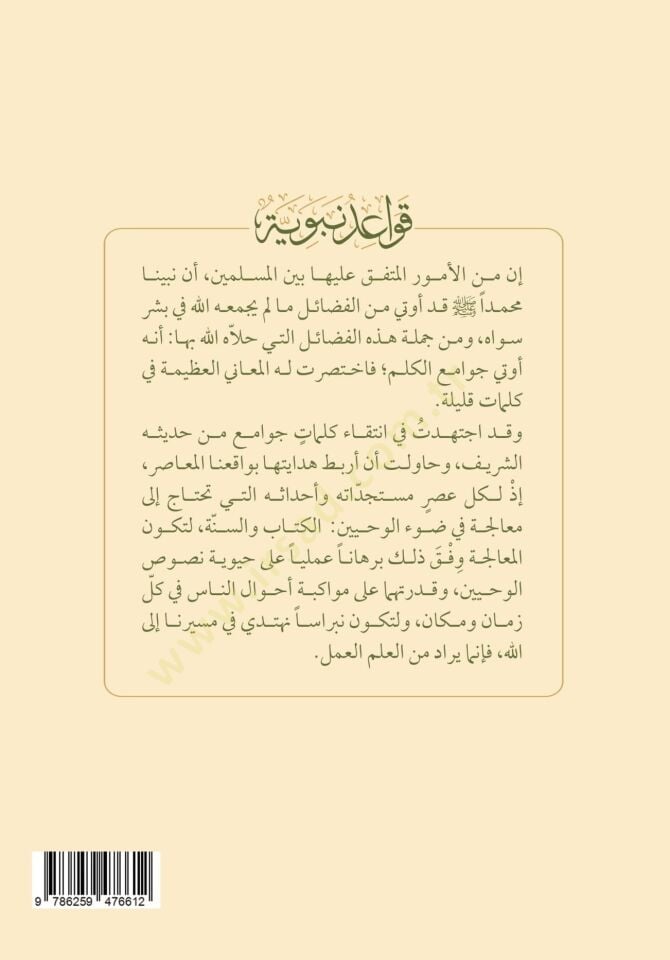 قواعد نبوية
إن من الأمور المتفق عليها بين المسلمين، أن نبينا
محمداً ﷺ قد أوتي من الفضائل ما لم يجمعه الله في بشر
سواه، ومن جملة هذه الفضائل التي حلاّه الله بها: أنه
أوتي جوامع الكلم؛ فاختصرت له المعاني العظيمة في
كلمات قليلة.
وقد اجتهدتُ في انتقاء كلماتٍ جوامع من حديثه
الشريف، وحاولت أن أربط هدايتها بواقعنا المعاصر،
إذْ لكل عصرٍ مستجدّاته وأحداثه التي تحتاج إلى
معالجة في ضوء الوحيين: الكتاب والسنّة، لتكون
المعالجة وِفْقَ ذلك برهاناً عملياً على حيوية نصوص
الوحيين، وقدرتهما على مواكبة أحوال الناس في كلّ
زمان ومكان، ولتكون نبراساً نهتدي في مسيرنا إلى
الله، فإنما يراد من العلم العمل.
www.irsad.com.tr
9 786259 476612